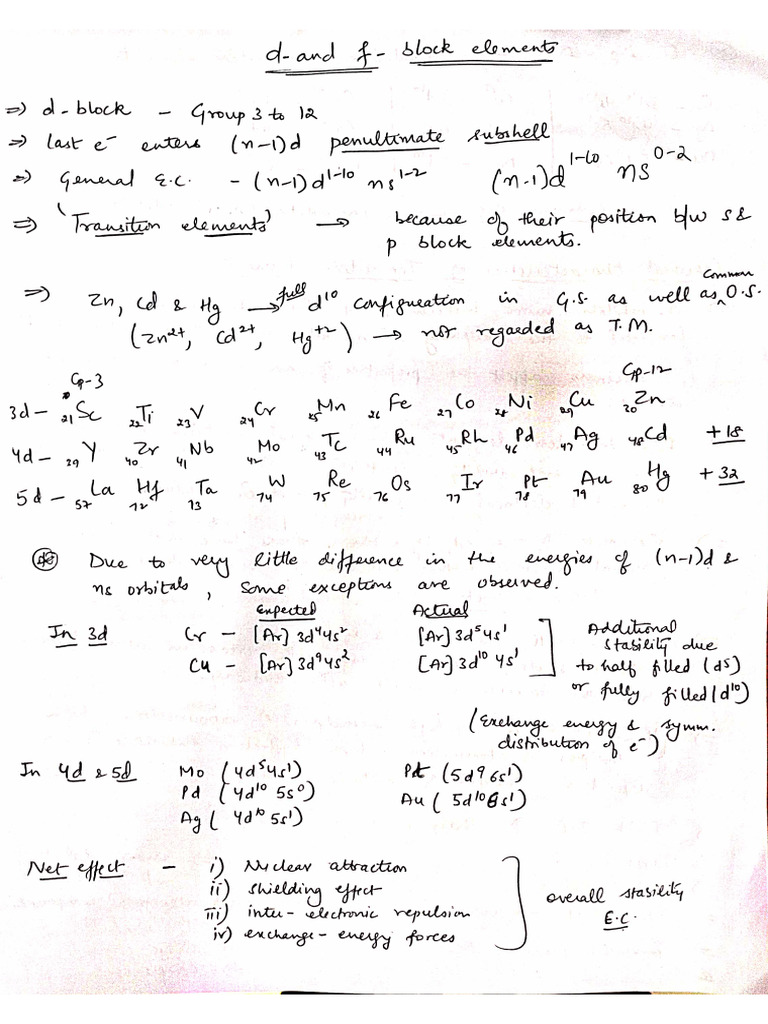 d- and f- block elements
⇒ d-block - Group 3 to 12
⇒ last e⁻ enters (n-1)d penultimate subshell
⇒ General E.C. - (n-1)d¹⁻¹⁰ ns¹⁻² (n-1)d¹⁻¹⁰ ns⁰⁻²
⇒ 'Transition elements' → because of their position b/w s &
p block elements.
⇒ Zn, Cd & Hg → full d¹⁰ configuration in G.S. as well as common O.S.
(Zn²⁺, Cd²⁺, Hg⁺²) → not regarded as T.M.
Gp-3 Gp-12
3d - ₂₁Sc ₂₂Ti ₂₃V ₂₄Cr ₂₅Mn ₂₆Fe ₂₇Co ₂₈Ni ₂₉Cu ₃₀Zn
4d - ₃₉Y ₄₀Zr ₄₁Nb ₄₂Mo ₄₃Tc ₄₄Ru ₄₅Rh ₄₆Pd ₄₇Ag ₄₈Cd +18
5d - ₅₇La ₇₂Hf ₇₃Ta ₇₄W ₇₅Re ₇₆Os ₇₇Ir ₇₈Pt ₇₉Au ₈₀Hg +32
Due to very little difference in the energies of (n-1)d &
ns orbitals, some exceptions are observed.
Expected Actual
In 3d Cr - [Ar]3d⁴4s² [Ar]3d⁵4s¹
Cu - [Ar]3d⁹4s² [Ar]3d¹⁰4s¹
Additional
stability due
to half filled (d⁵)
or fully filled (d¹⁰)
(Exchange energy & symm.
distribution of e⁻)
In 4d & 5d Mo (4d⁵5s¹) Pt (5d⁹6s¹)
Pd (4d¹⁰ 5s⁰) Au (5d¹⁰6s¹)
Ag (4d¹⁰ 5s¹)
Net effect - i) Nuclear attraction
ii) shielding effect
iii) inter-electronic repulsion
iv) exchange-energy forces
overall stability
E.C.